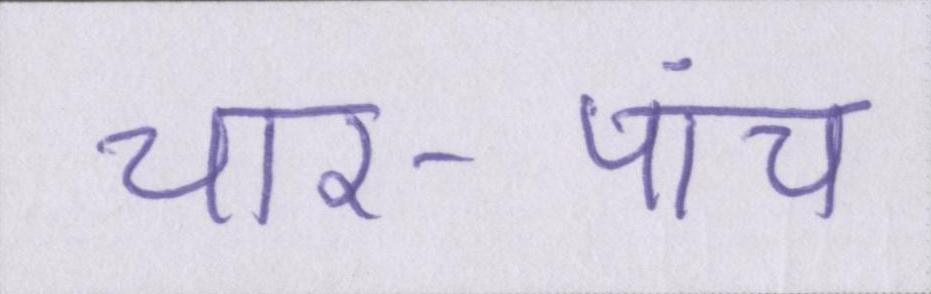 चार- पांच